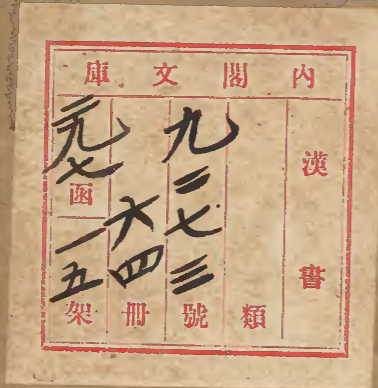 内閣文庫
漢書
類
九二七三號
六四冊
二九七函
一五架